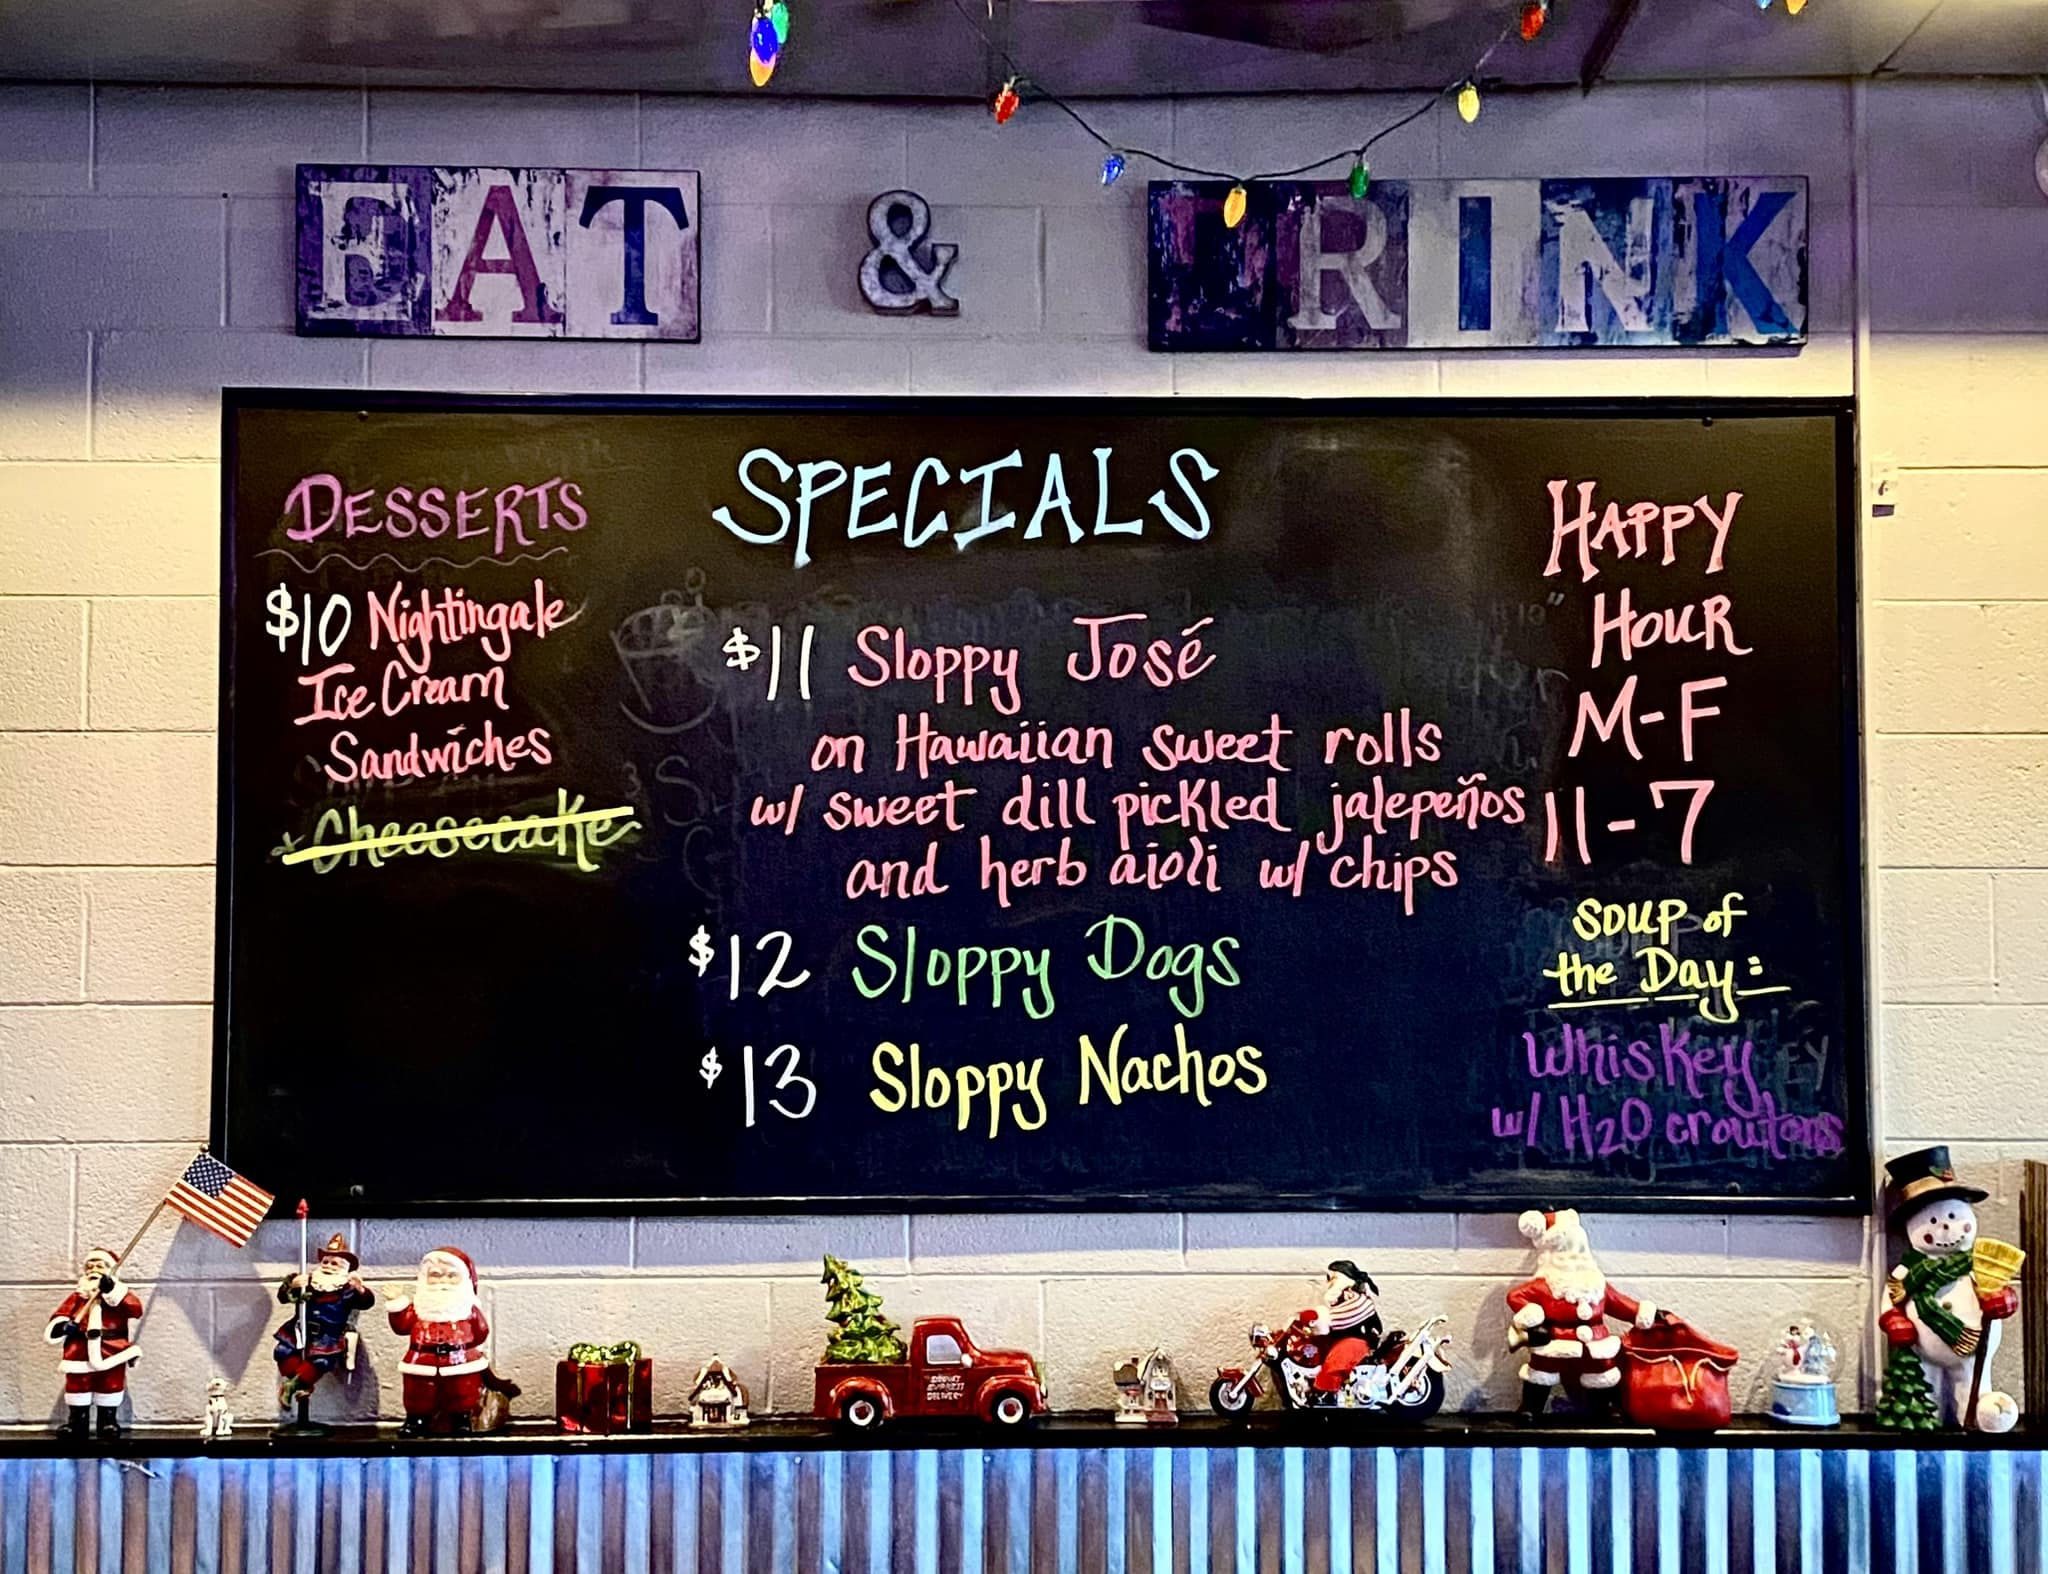 EAT & DRINK
DESSERTS
$10 Nightingale
Ice Cream
Sandwiches
Cheesecake
SPECIALS
$11 Sloppy José
on Hawaiian sweet rolls
w/ sweet dill pickled jalepeños
and herb aioli w/ chips
$12 Sloppy Dogs
$13 Sloppy Nachos
HAPPY
HOUR
M-F
11-7
SOUP of
the Day:
Whiskey
w/ H2O croutons
DELIVERY